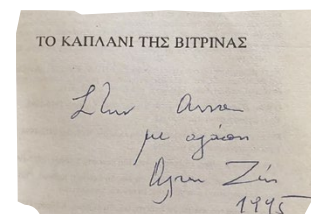 ΤΟ ΚΑΠΛΑΝΙ ΤΗΣ ΒΙΤΡΙΝΑΣ
Στην Άννα
με αγάπη
Άλκη Ζέη
1995